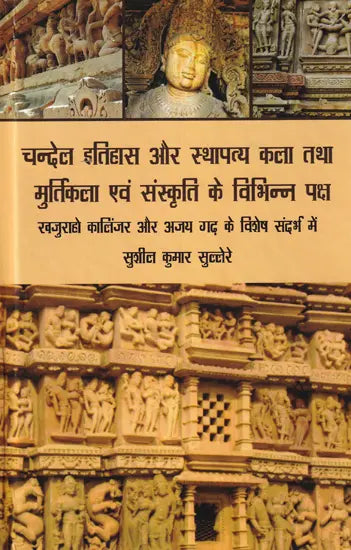 चन्देल इतिहास और स्थापत्य कला तथा
मुर्तिकला एवं संस्कृति के विभिन्न पक्ष
खजुराहो कालिंजर और अजय गढ़ के विशेष संदर्भ में
सुशील कुमार सुल्लेरे